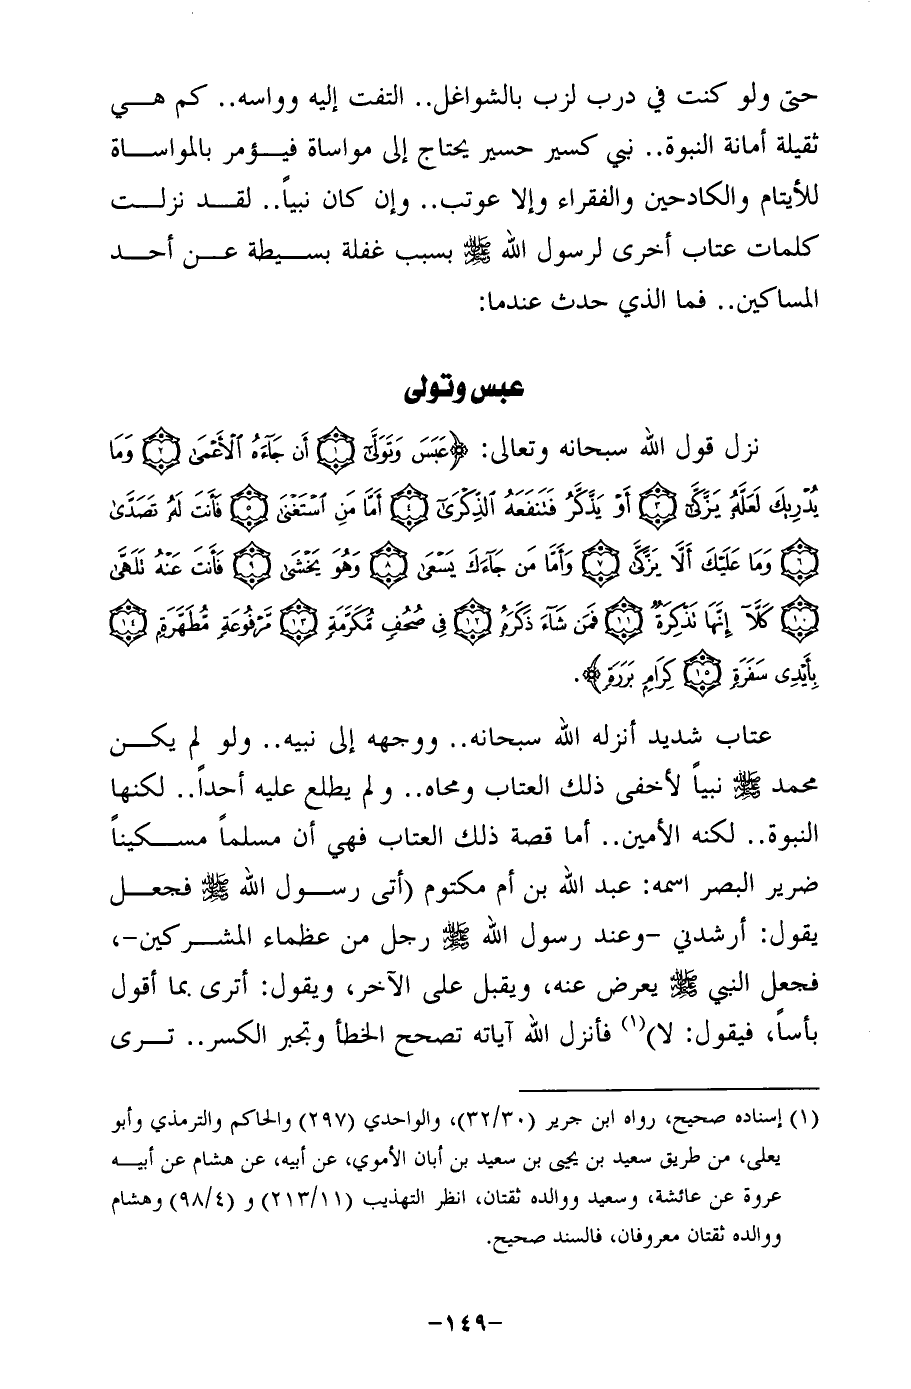 حتى ولو كنت في درب لزب بالشواغل.. التفت إليه وواسه.. كم هـــي
ثقيلة أمانة النبوة.. نبي كسير حسير يحتاج إلى مواساة فيــؤمر بالمواســاة
للأيتام والكادحين والفقراء وإلا عوتب.. وإن كان نبياً.. لقــد نزلــت
كلمات عتاب أخرى لرسول الله ﷺ بسبب غفلة بســيطة عــن أحــد
المساكين.. فما الذي حدث عندما:
عبس وتولى
نزل قول الله سبحانه وتعالى: ﴿عَبَسَ وَتَوَلَّىٰٓ ۝١ أَن جَآءَهُ ٱلْأَعْمَىٰ ۝٢ وَمَا
يُدْرِيكَ لَعَلَّهُۥ يَزَّكَّىٰٓ ۝٣ أَوْ يَذَّكَّرُ فَتَنفَعَهُ ٱلذِّكْرَىٰٓ ۝٤ أَمَّا مَنِ ٱسْتَغْنَىٰ ۝٥ فَأَنتَ لَهُۥ تَصَدَّىٰ
۝٦ وَمَا عَلَيْكَ أَلَّا يَزَّكَّىٰ ۝٧ وَأَمَّا مَن جَآءَكَ يَسْعَىٰ ۝٨ وَهُوَ يَخْشَىٰ ۝٩ فَأَنتَ عَنْهُ تَلَهَّىٰ
۝١٠ كَلَّآ إِنَّهَا تَذْكِرَةٌ ۝١١ فَمَن شَآءَ ذَكَرَهُۥ ۝١٢ فِى صُحُفٍ مُّكَرَّمَةٍ ۝١٣ مَّرْفُوعَةٍ مُّطَهَّرَةٍۭ ۝١٤
بِأَيْدِى سَفَرَةٍ ۝١٥ كِرَامٍۭ بَرَرَةٍ﴾.
عتاب شديد أنزله الله سبحانه.. ووجهه إلى نبيه.. ولو لم يكــن
محمد ﷺ نبياً لأخفى ذلك العتاب ومحاه.. ولم يطلع عليه أحداً.. لكنها
النبوة.. لكنه الأمين.. أما قصة ذلك العتاب فهي أن مسلماً مســكيناً
ضرير البصر اسمه: عبد الله بن أم مكتوم (أتى رســول الله ﷺ فجعــل
يقول: أرشدني -وعند رسول الله ﷺ رجل من عظماء المشــركين-،
فجعل النبي ﷺ يعرض عنه، ويقبل على الآخر، ويقول: أترى بما أقول
بأساً، فيقول: لا)(١) فأنزل الله آياته تصحح الخطأ وتجبر الكسر.. تــرى
(١) إسناده صحيح، رواه ابن جرير (٣٢/٣٠)، والواحدي (٢٩٧) والحاكم والترمذي وأبو
يعلى، من طريق سعيد بن يحيى بن سعيد بن أبان الأموي، عن أبيه، عن هشام عن أبيــه
عروة عن عائشة، وسعيد ووالده ثقتان، انظر التهذيب (٢١٣/١١) و (٩٨/٤) وهشام
ووالده ثقتان معروفان، فالسند صحيح.
-١٤٩-